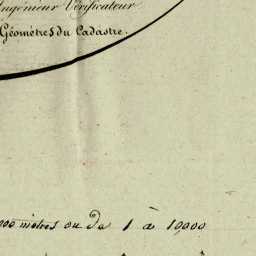 Ingénieur Vérificateur
Géomètres du Cadastre.
000 mètres ou de 1 à 10,000